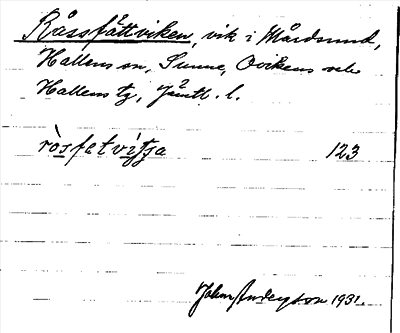 Råssfättviken, vik i Mårdsund,
Hallens sn, Sunne, Ovikens och
Hallens tg, Jämtl. l.
rɔ̀sfetvitʃa 123
John Anderson 1931.